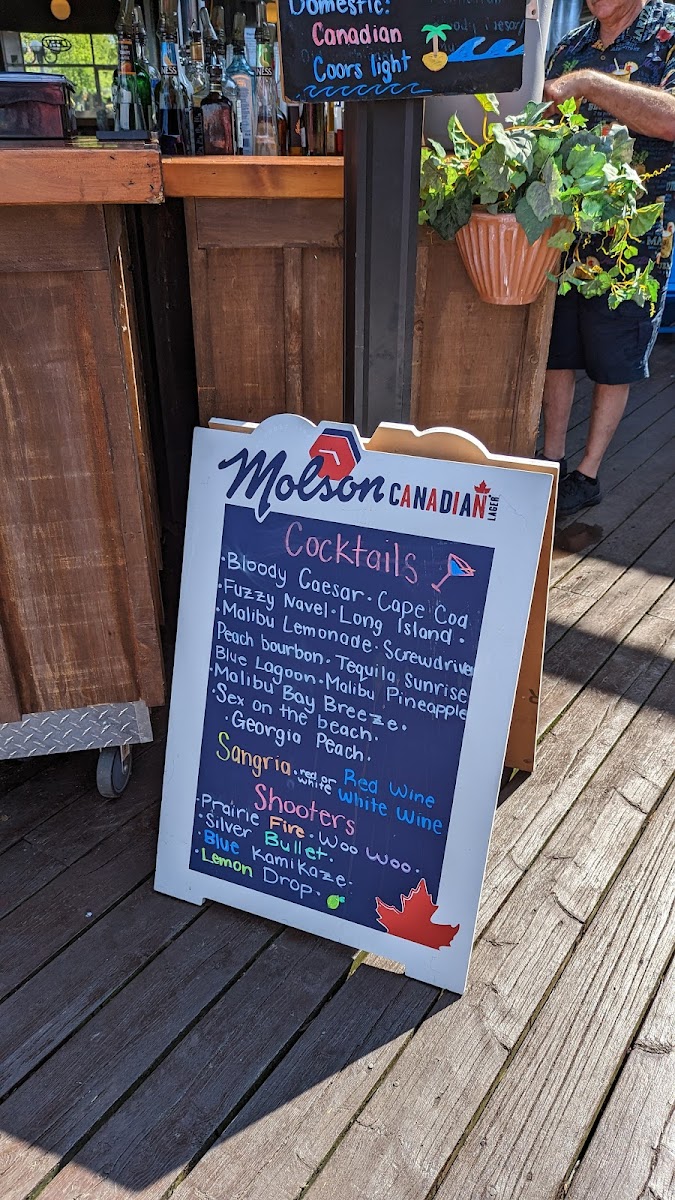 Domestic:
Canadian
Coors light
Molson CANADIAN LAGER
Cocktails
·Bloody Caesar·Cape Cod
·Fuzzy Navel·Long Island·
·Malibu Lemonade·Screwdriver
Peach bourbon·Tequila Sunrise
Blue Lagoon·Malibu Pineapple
·Malibu Bay Breeze·
·Sex on the beach·
·Georgia Peach·
Sangria·red or white Red Wine
White Wine
Shooters
·Prairie Fire·Woo Woo·
·Silver Bullet·
·Blue Kamikaze·
·Lemon Drop·